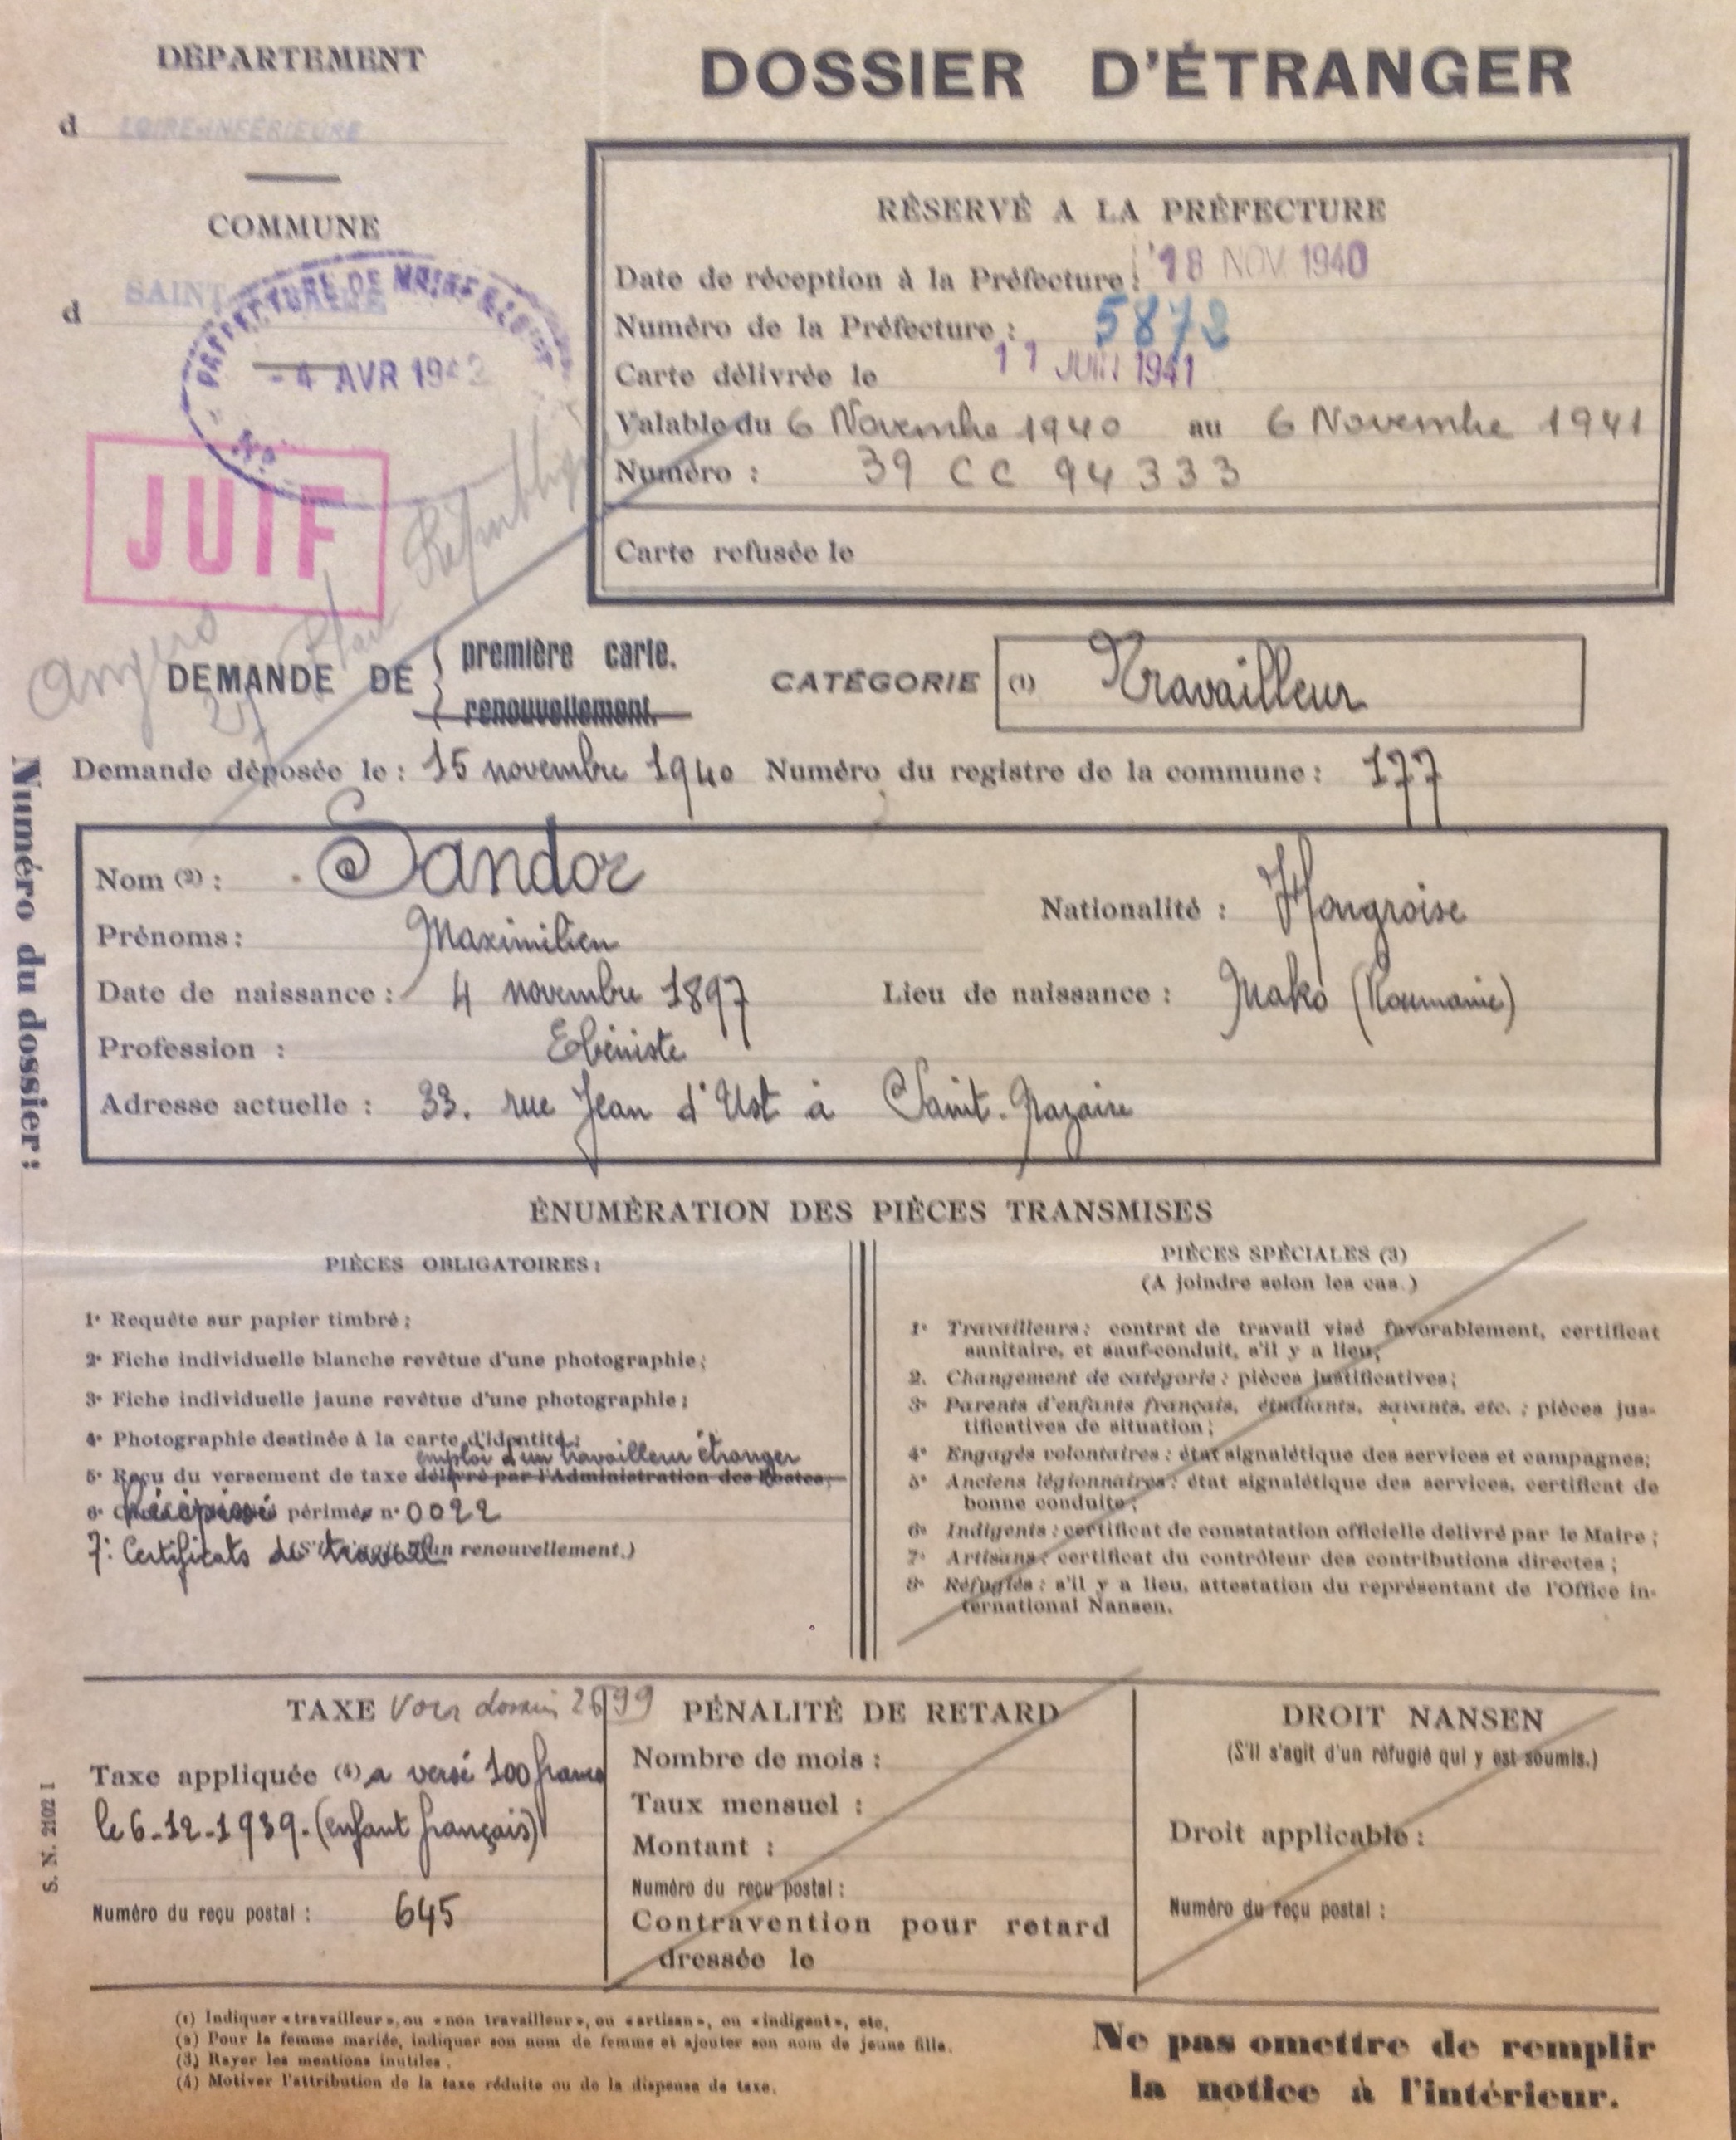 DÉPARTEMENT
d LOIRE-INFÉRIEURE
COMMUNE
d SAINT
PRÉFECTURE DE MAINE & LOIRE
- 4 AVR 1942
JUIF
DOSSIER D'ÉTRANGER
RÉSERVÉ A LA PRÉFECTURE
Date de réception à la Préfecture : 18 NOV. 1940
Numéro de la Préfecture : 5872
Carte délivrée le 11 JUIN 1941
Valable du 6 Novembre 1940 au 6 Novembre 1941
Numéro : 39 CC 94333
Carte refusée le
Angers
21 Place République
DEMANDE DE { première carte.
renouvellement.
CATÉGORIE (1) Travailleur
Demande déposée le : 15 novembre 1940 Numéro du registre de la commune : 177
Numéro du dossier :
Nom (2) : Sandor
Nationalité : Hongroise
Prénoms : Maximilien
Date de naissance : 4 novembre 1897 Lieu de naissance : Mako (Roumanie)
Profession : Ebéniste
Adresse actuelle : 33. rue Jean d'Ust à Saint-Nazaire
ÉNUMÉRATION DES PIÈCES TRANSMISES
PIÈCES OBLIGATOIRES :
1° Requête sur papier timbré ;
2° Fiche individuelle blanche revêtue d'une photographie ;
3° Fiche individuelle jaune revêtue d'une photographie ;
4° Photographie destinée à la carte d'identité ;
emploi d'un travailleur étranger
5° Reçu du versement de taxe délivré par l'Administration des Postes ;
6° Récépissé périmé n° 0022
7° Certificats de travail (S'il s'agit d'un renouvellement.)
PIÈCES SPÉCIALES (3)
(A joindre selon les cas.)
1° Travailleurs : contrat de travail visé favorablement, certificat
sanitaire, et sauf-conduit, s'il y a lieu ;
2. Changement de catégorie : pièces justificatives ;
3° Parents d'enfants français, étudiants, savants, etc. : pièces jus-
tificatives de situation ;
4° Engagés volontaires : état signalétique des services et campagnes ;
5° Anciens légionnaires : état signalétique des services, certificat de
bonne conduite ;
6° Indigents : certificat de constatation officielle delivré par le Maire ;
7° Artisans : certificat du contrôleur des contributions directes ;
8° Réfugiés : s'il y a lieu, attestation du représentant de l'Office in-
ternational Nansen.
TAXE Voir dossier 2699
Taxe appliquée (4) a versé 100 francs
le 6-12-1939. (enfant français)
Numéro du reçu postal : 645
PÉNALITÉ DE RETARD
Nombre de mois :
Taux mensuel :
Montant :
Numéro du reçu postal :
Contravention pour retard
dressée le
DROIT NANSEN
(S'il s'agit d'un réfugié qui y est soumis.)
Droit applicable :
Numéro du reçu postal :
S. N. 2102 I
(1) Indiquer « travailleur », ou « non travailleur », ou « artisan », ou « indigent », etc.
(2) Pour la femme mariée, indiquer son nom de femme et ajouter son nom de jeune fille.
(3) Rayer les mentions inutiles.
(4) Motiver l'attribution de la taxe réduite ou de la dispense de taxe.
Ne pas omettre de remplir
la notice à l'intérieur.